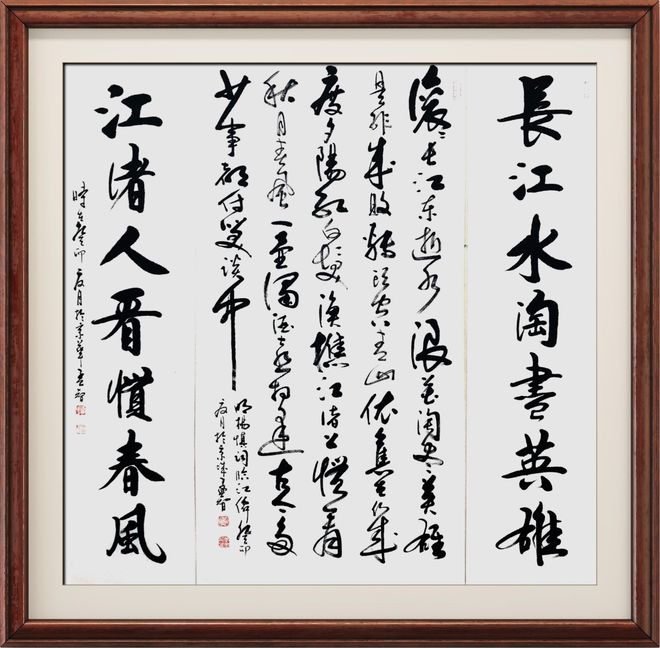 長江水淘盡英雄
滾滾長江東逝水浪花淘盡英雄
是非成敗轉頭空青山依舊在幾
度夕陽紅白髮漁樵江渚上慣看
秋月春風一壺濁酒喜相逢古今多
少事都付笑談中
明楊慎詞臨江仙癸卯
夏月於京華
江渚人看慣春風
時在癸卯夏月於京華